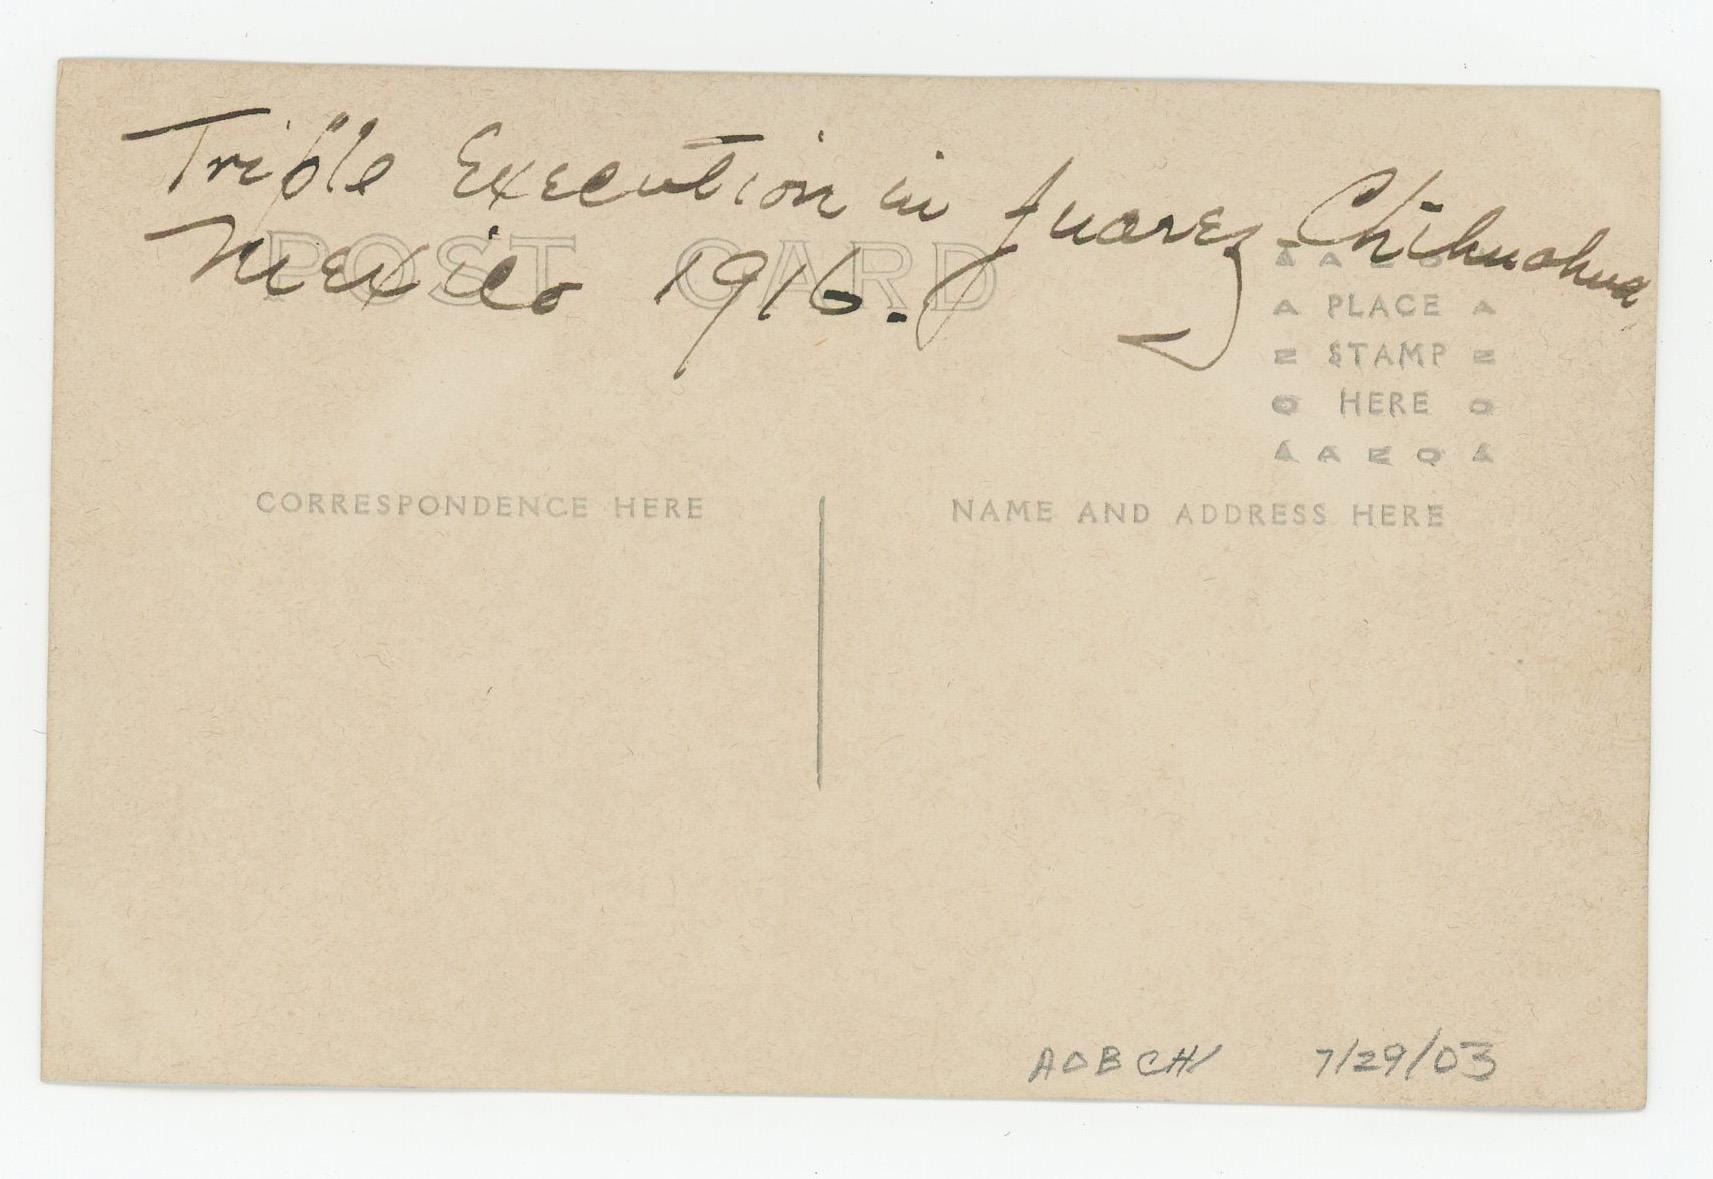 Triple Execution in Juarez Chihuahua
Mexico 1916.
POST CARD
A A Z O A
A PLACE A
Z STAMP Z
O HERE O
A A Z O A
CORRESPONDENCE HERE
NAME AND ADDRESS HERE
7/29/03